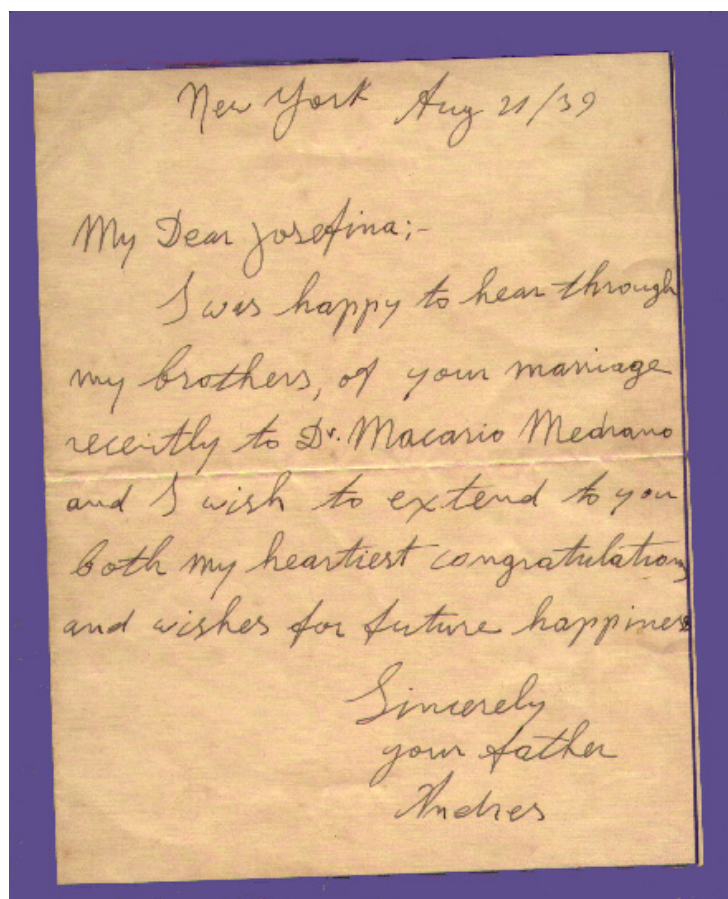 New York Aug 21/39
My Dear Josefina;-
I was happy to hear through
my brothers, of your marriage
recently to Dr. Macario Medrano
and I wish to extend to you
both my heartiest congratulations
and wishes for future happiness
Sincerely
your father
Andres